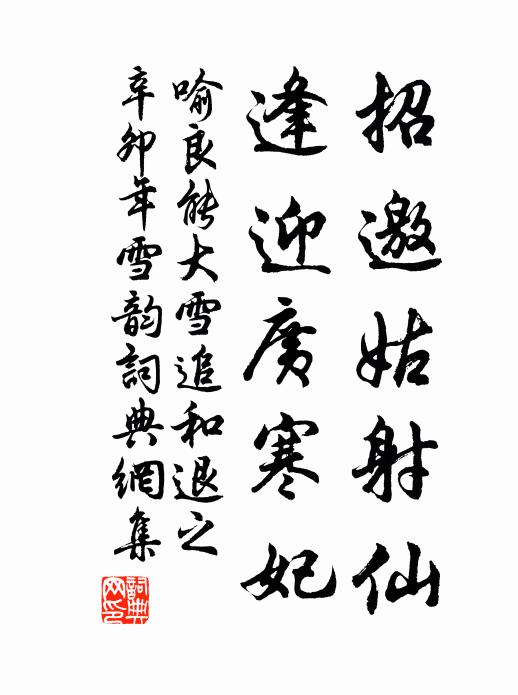 招邀姑射仙
逢迎廣寒妃
喻良能大雪追和退之
辛卯年雪韵詞典網集
詞典網印